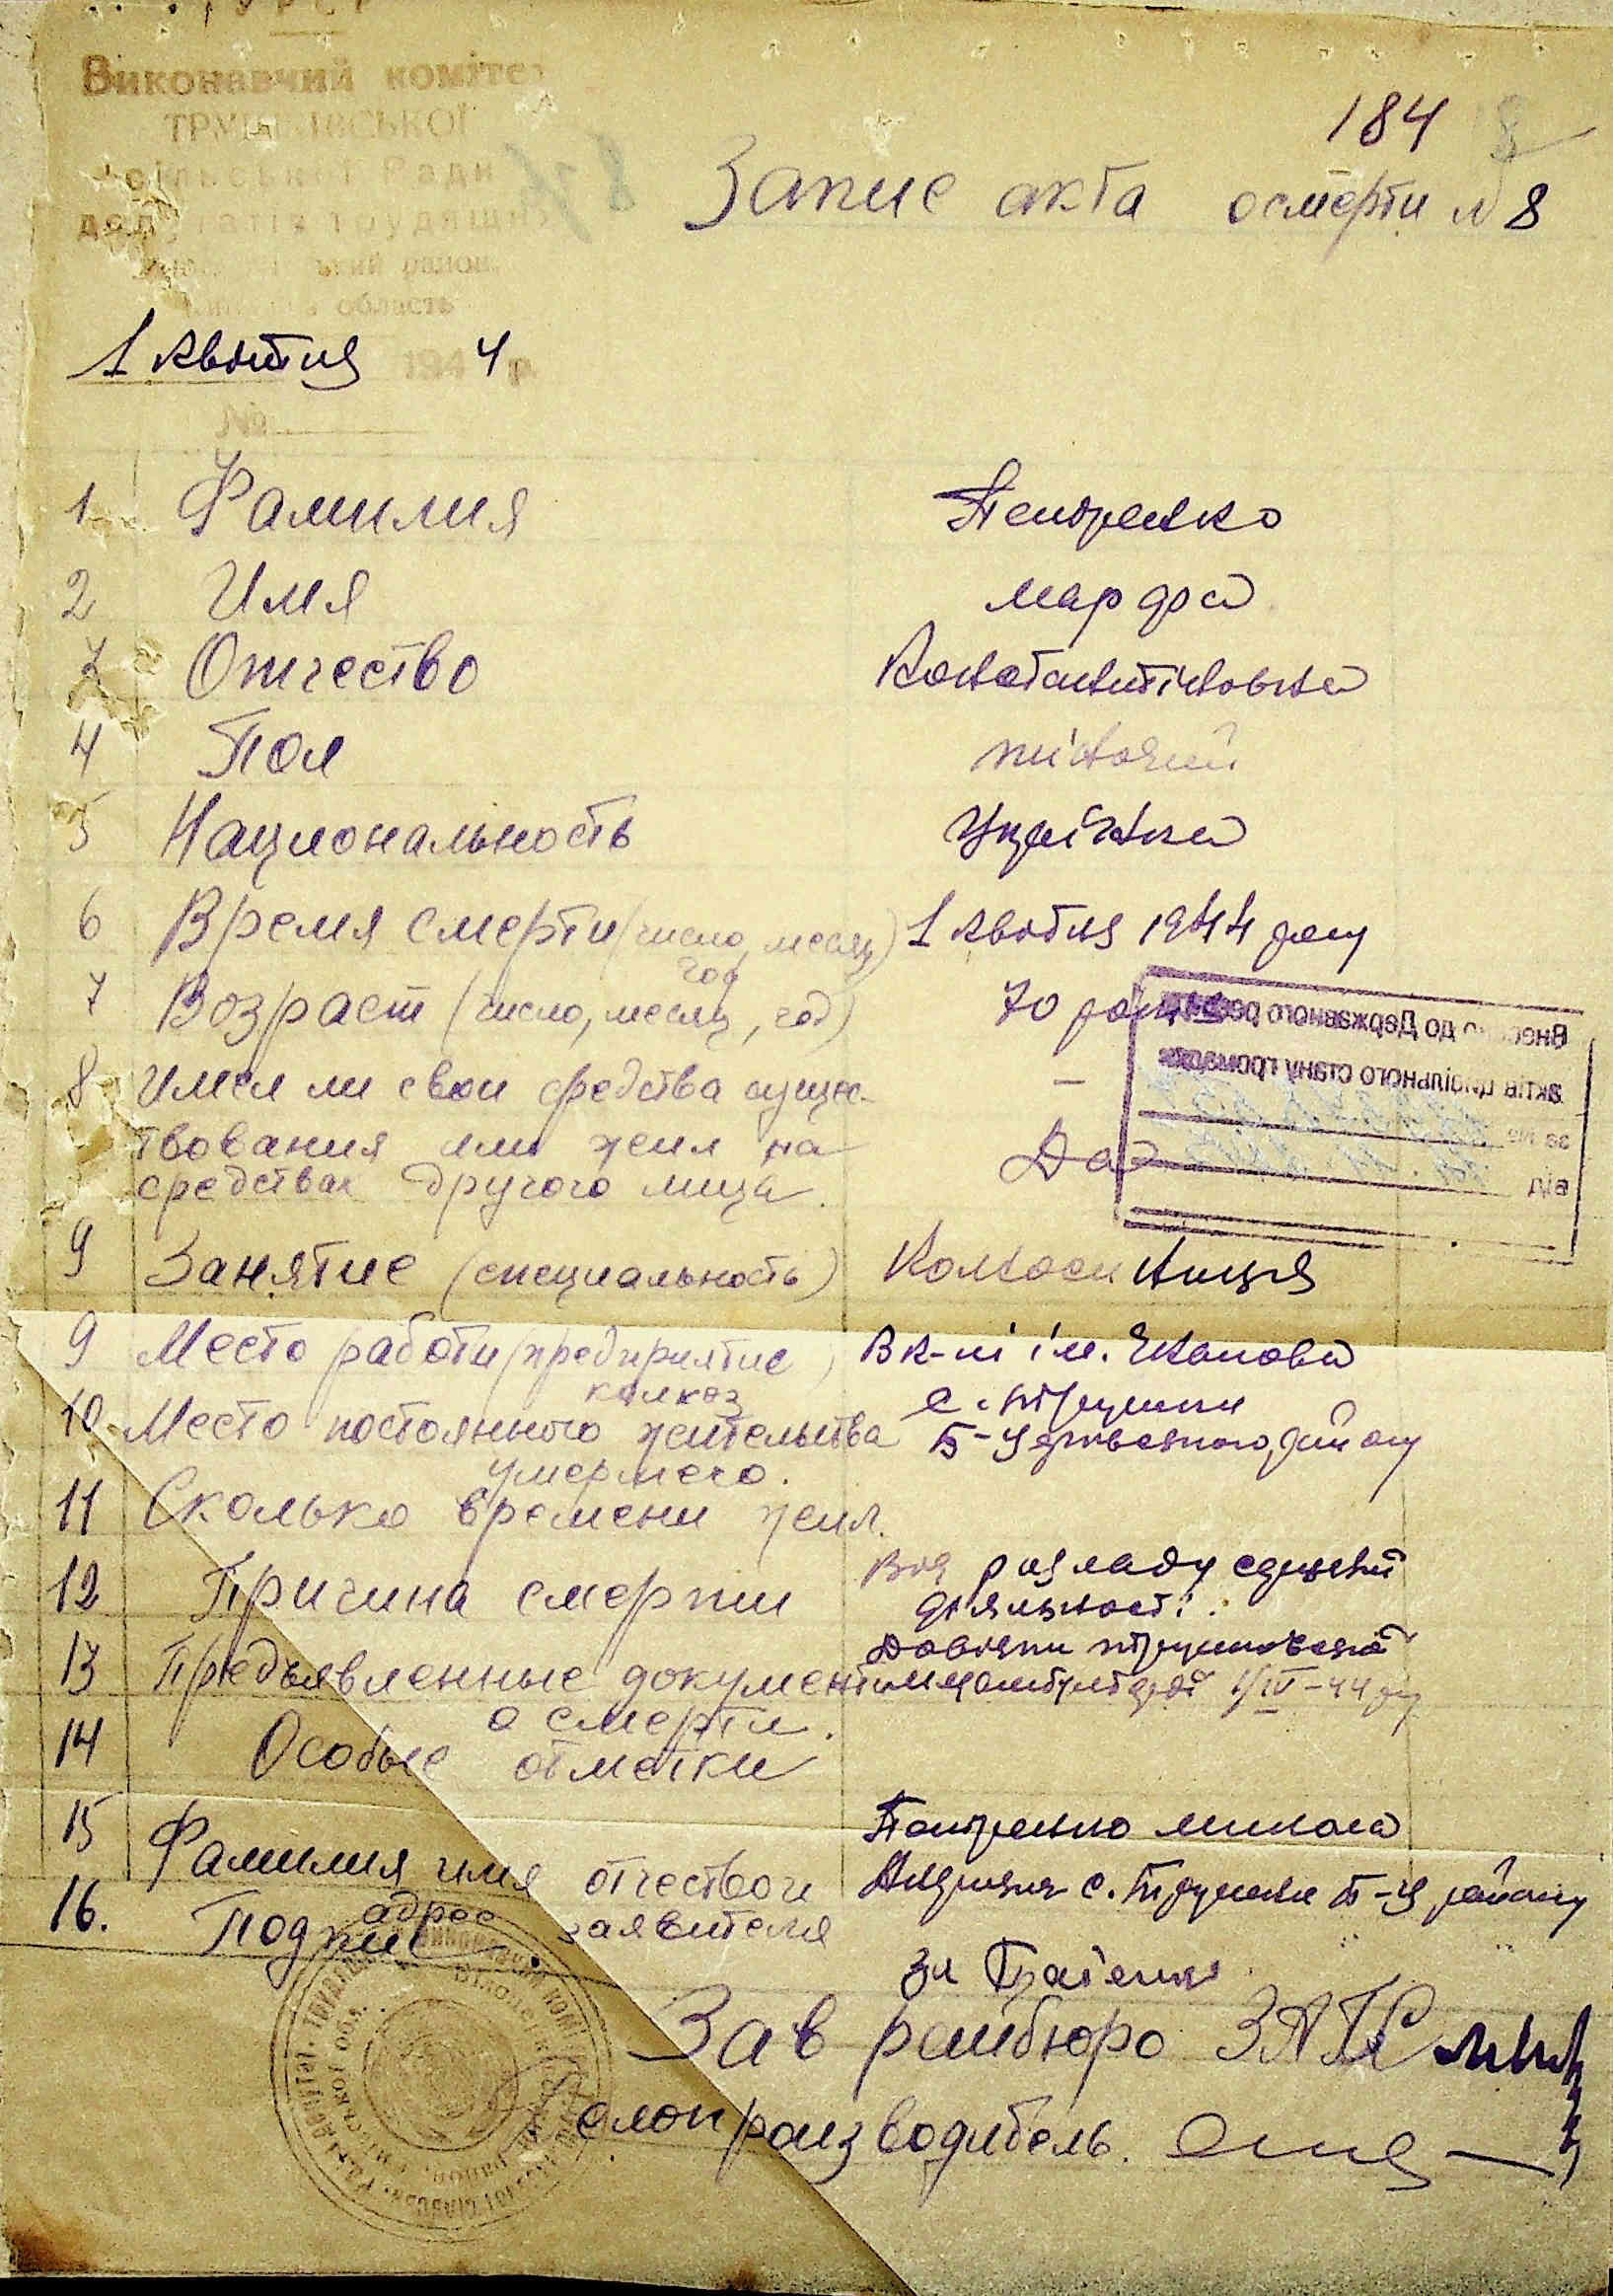 Виконавчий комітет
ТРУШ ІВСЬКОЇ
сільської Ради
район
область
1 квітня 1944 р.
№
184
Запис акта о смерти № 8
1 Фамилия Петренко
2 Имя Марфа
3 Отчество Константиновна
4 Пол жіночий
5 Национальность Українка
6 Время смерти (число, месяц, год) 1 квітня 1944 року
7 Возраст (число, месяц, год) 70 років
8 Имел ли свои средства сущес- —
твования или жил на
средствах другого лица. Да
9 Занятие (специальность) Колгоспниця
9 Место работы (предприятие, колхоз В к-пі ім. Чкалова
10 Место постоянного жительства умермего. с. Трушки Б-Церковского району
11 Сколько времени жил.
12 Причина смерти Від розладу серцевой діяльності.
13 Предъявленные документы о смерти. Довідки IV-44 р
14 Особые отметки
15 Фамилия имя отчество и адрес заявителя Петренко Микола
с. Трушки Б-Ц району
16. Подпис за
Зав райбюро ЗАГС
Делопроизводитель.
Внесено до Державного реєстру
актів цивільного стану громадян
за №
від